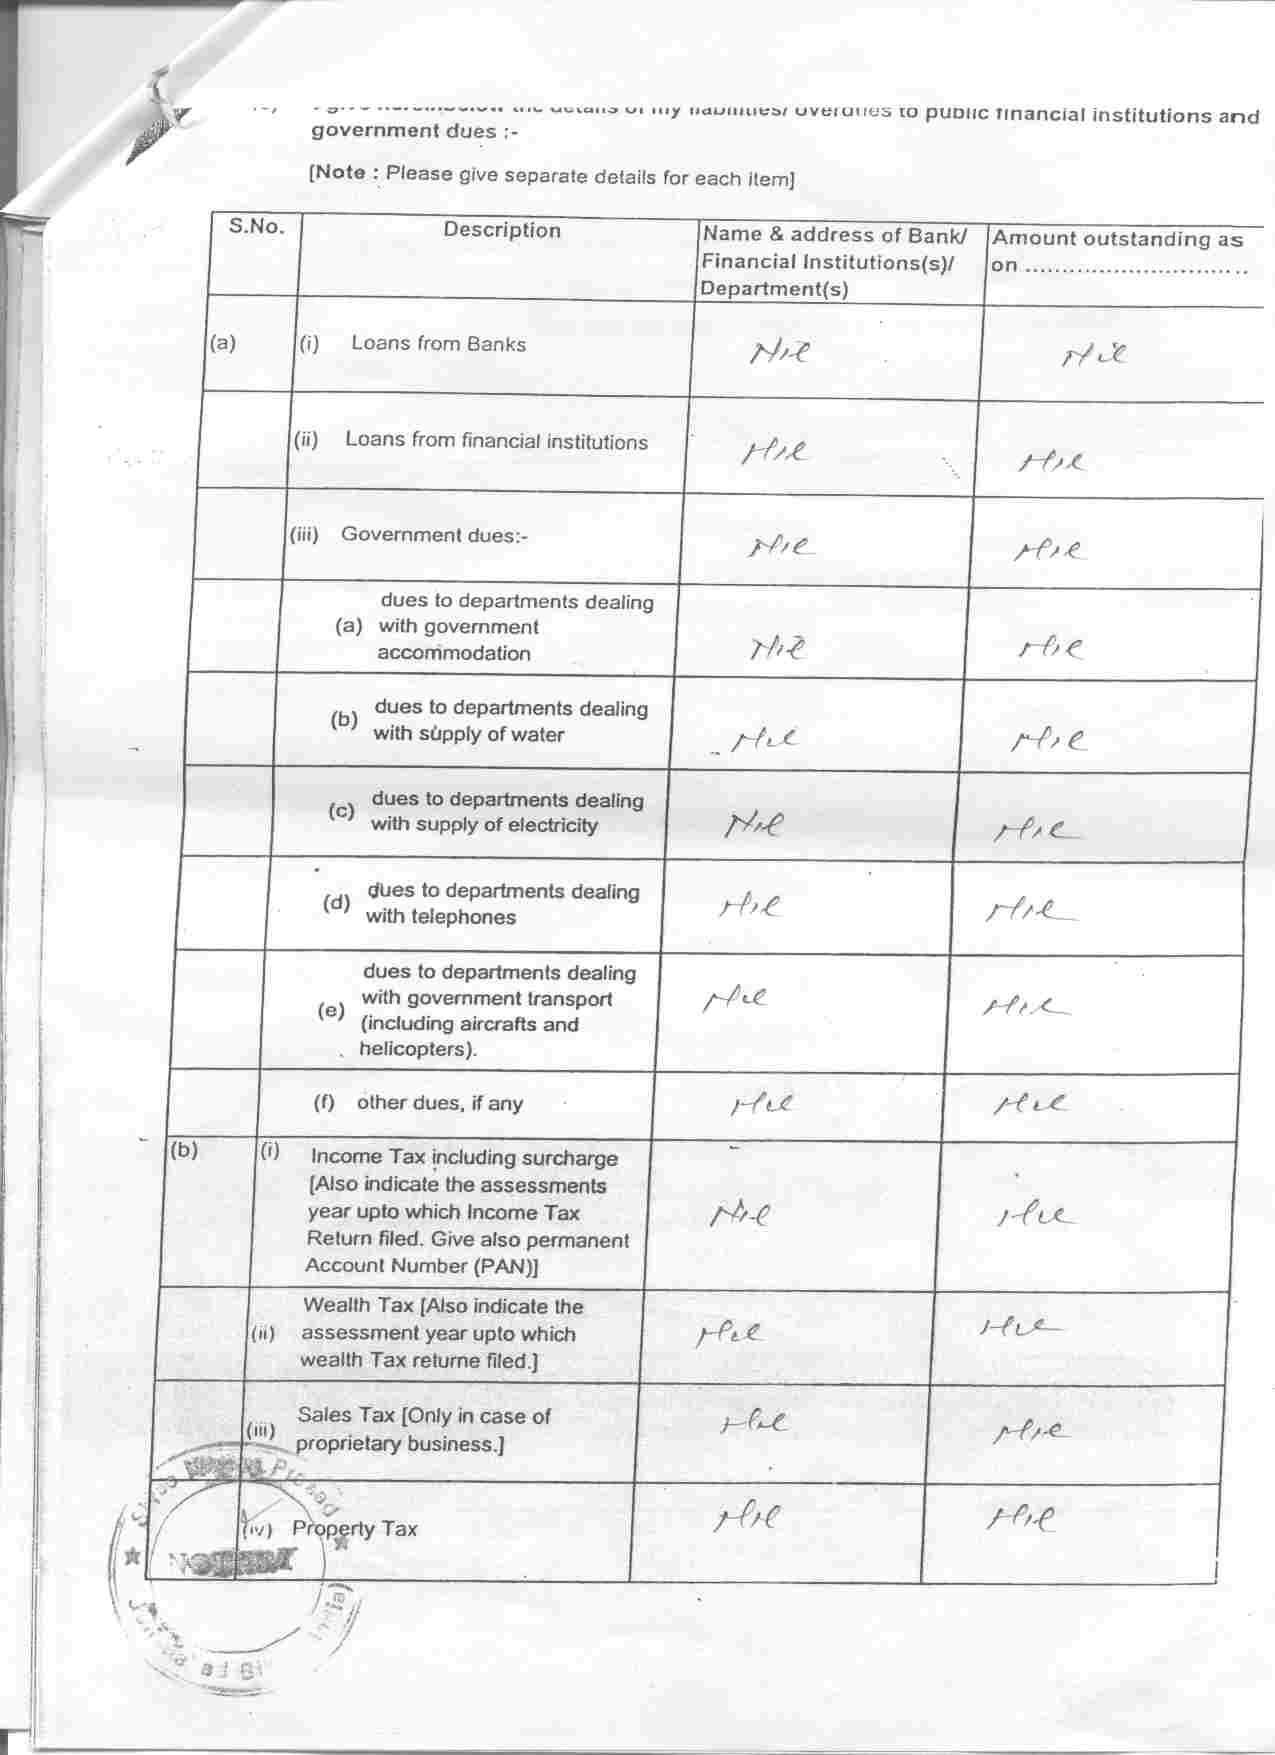 I give hereinbelow the details of my liabilities/ overdues to public financial institutions and
government dues :-
[Note : Please give separate details for each item]
S.No. Description Name & address of Bank/ Amount outstanding as
Financial Institutions(s)/ on ..............................
Department(s)
(a) (i) Loans from Banks Nil Nil
(ii) Loans from financial institutions Nil Nil
(iii) Government dues:- Nil Nil
dues to departments dealing
(a) with government
accommodation Nil Nil
dues to departments dealing
(b) with supply of water Nil Nil
dues to departments dealing
(c) with supply of electricity Nil Nil
dues to departments dealing
(d) with telephones Nil Nil
dues to departments dealing
(e) with government transport Nil Nil
(including aircrafts and
helicopters).
(f) other dues, if any Nil Nil
(b) (i) Income Tax including surcharge
[Also indicate the assessments
year upto which Income Tax Nil Nil
Return filed. Give also permanent
Account Number (PAN)]
Wealth Tax [Also indicate the
(ii) assessment year upto which Nil Nil
wealth Tax returne filed.]
Sales Tax [Only in case of Nil Nil
(iii) proprietary business.]
(iv) Property Tax Nil Nil
Prasad
NOTARY